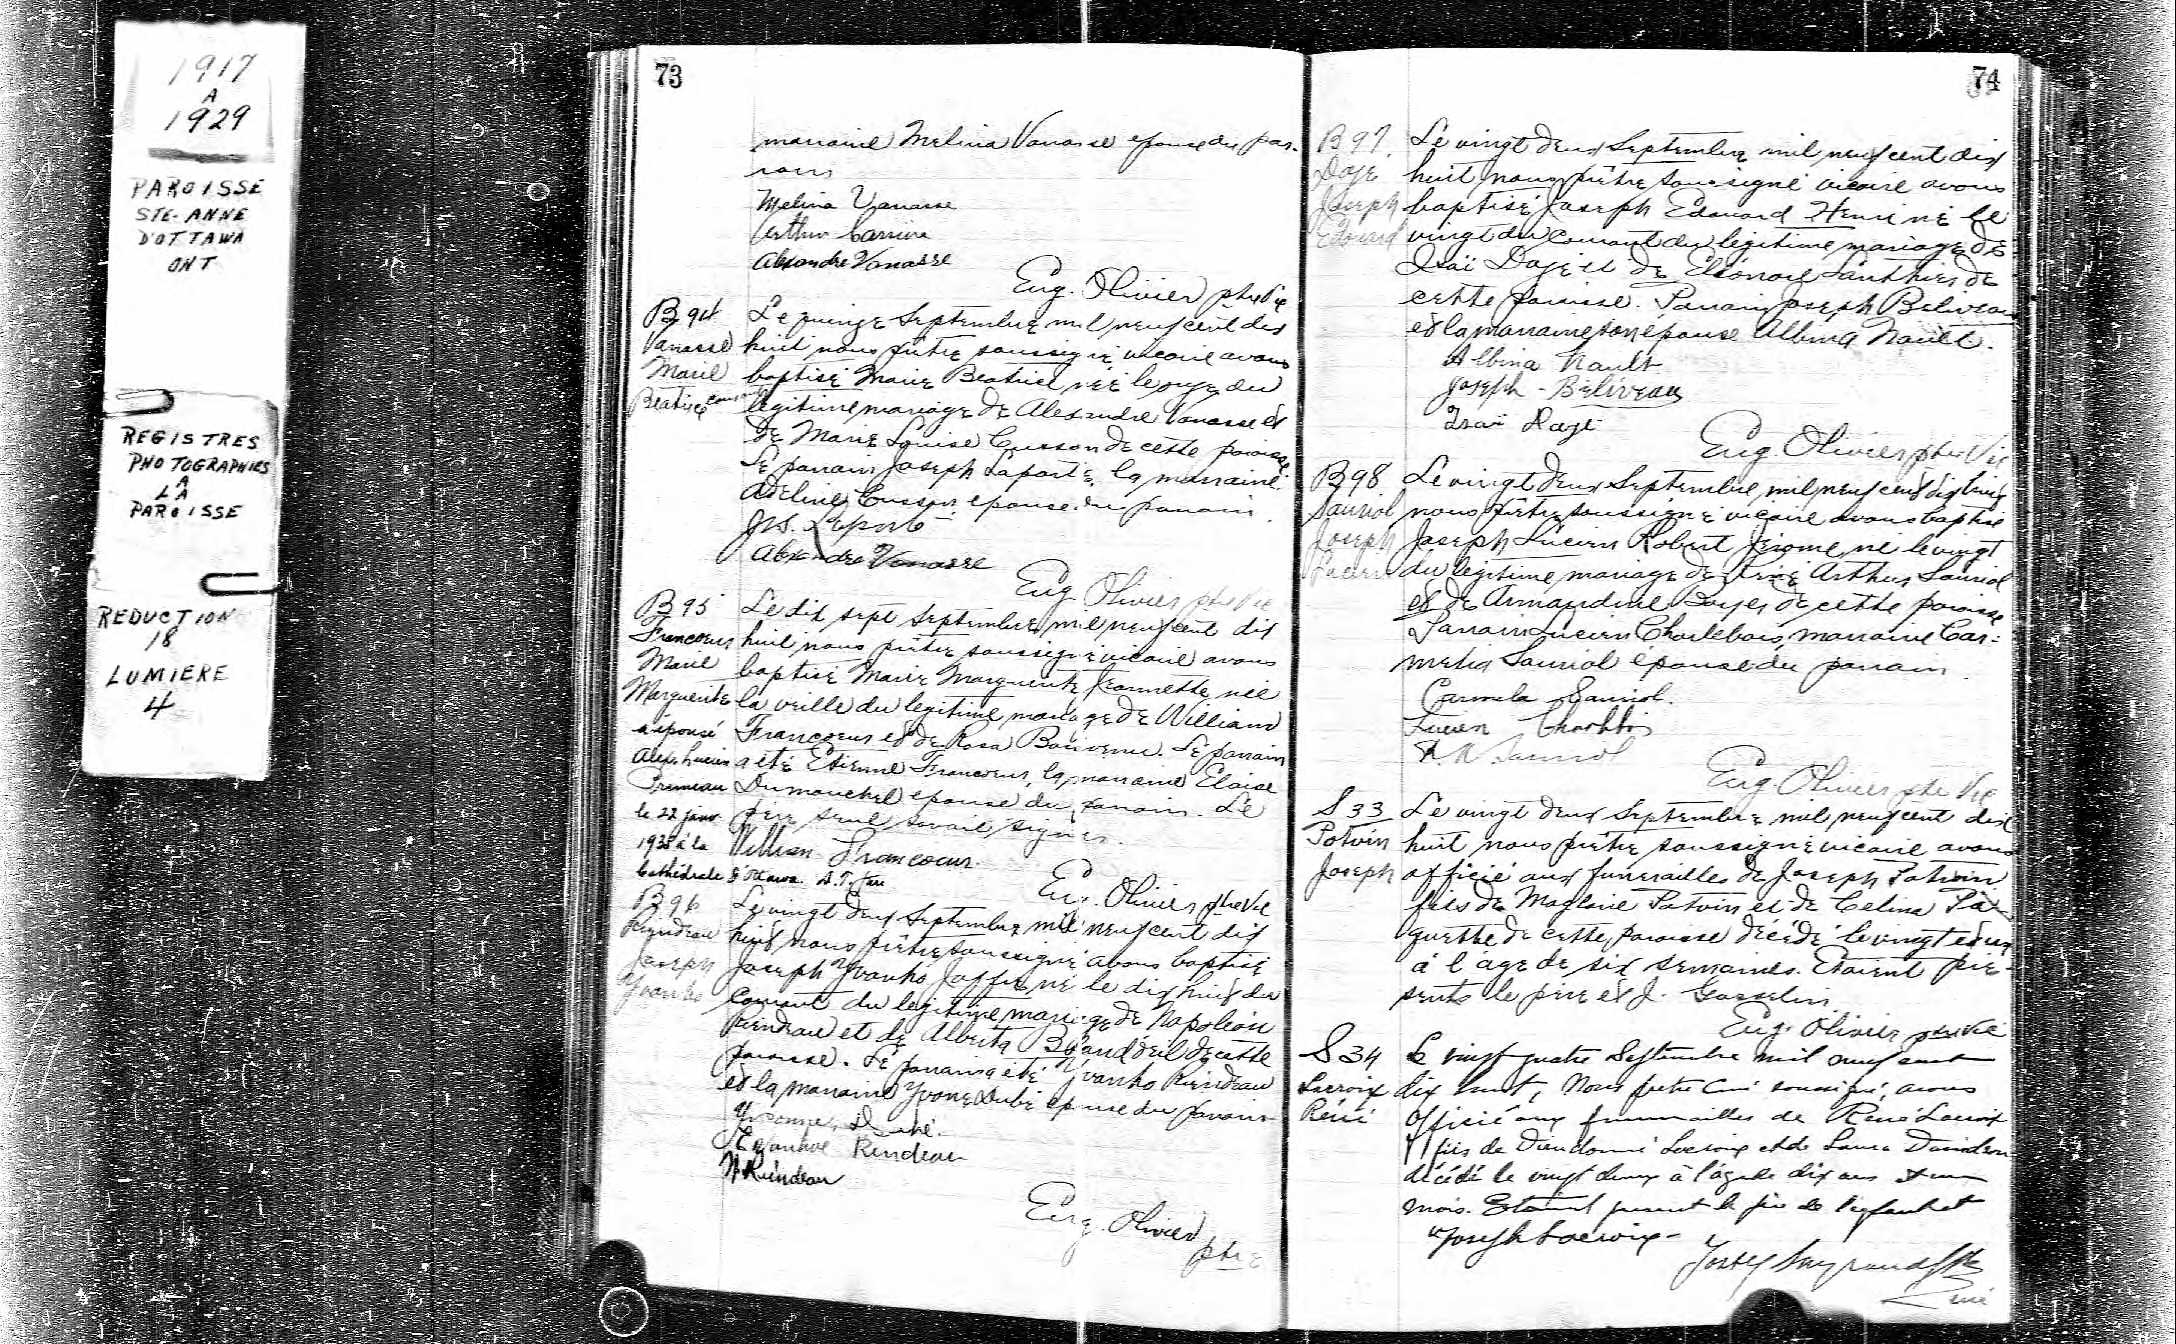 1917
A
1929
PAROISSE
STE-ANNE
D'OTTAWA
ONT
REGISTRES
PHOTOGRAPHIES
A
LA
PAROISSE
REDUCTION
18
LUMIERE
4
73
marraine Melina Vanasse epouse du par-
rain
Melina Vanasse
Arthur Carrière
Alexandre Vanasse
Eug. Olivier ptre Vic
B 94
Vanasse
Marie
Beatrice
Le quinze Septembre mil neuf cent dix
huit nous prêtre soussigné vicaire avons
baptisé Marie Beatrice née le onze du
courant
légitime mariage de Alexandre Vanasse et
de Marie Louise Cusson de cette paroisse
Le parrain Joseph Laporte, la marraine
Adeline Cusson epouse du parrain.
Jos. Laporte
Alexandre Vanasse
Eug Olivier ptre Vic
B 95
Francoeur
Marie
Marguerite
a épousé
Alex. Lucien
Primeau
le 22 janv.
1938 à la
Cathédrale d'Ottawa.
Le dix sept Septembre mil neuf cent dix
huit nous prêtre soussigné vicaire avons
baptisé Marie Marguerite Jeannette née
la veille du legitime mariage de William
Francoeur et de Rosa Bonvenu. Le parrain
a été Etienne Francoeur, la marraine Eloise
Dumouchel epouse du parrain. Le
père seul savait signer.
William Francoeur.
Eug. Olivier ptre Vic
B 96
Riendeau
Joseph
Yvanho
Le vingt deux Septembre mil neuf cent dix
huit nous prêtre soussigné avons baptisé
Joseph Yvanho Joffre né le dix huit du
courant du legitime mariage de Napoléon
Riendeau et de Alberta de cette
paroisse. Le parrain a été Yvanho Riendeau
et la marraine Yvone Dubé epouse du parrain
Yvonne Dubé.
Riendeau
N Riendeau
Eug. Olivier
ptre
74
B 97.
Doje
Joseph
Edouard
Le vingt deux Septembre mil neuf cent dix
huit nous prêtre soussigné vicaire avons
baptisé Joseph Edouard Henri né le
vingt du courant du légitime mariage de
Isaï Doje et de Eléonore de
cette paroisse. Parrain Joseph Beliveau
et la marraine son épouse Albina Nault.
Albina Nault
Joseph - Beliveau
Isaï
Eug. Olivier ptre Vic
B 98
Sauriol
Joseph
Lucien
Le vingt deux Septembre mil neuf cent dix huit
nous prêtre soussigné vicaire avons baptisé
Joseph Lucien Robert Jérome né le vingt
du légitime mariage de Arthur Sauriol
et de Armandine Boyer de cette paroisse
Parrain Lucien Charlebois, marraine Car-
melia Sauriol épouse du parrain.
Carmela Sauriol.
Lucien
Sauriol
Eug. Olivier ptre Vic
S 33
Potvin
Joseph
Le vingt deux Septembre mil neuf cent dix
huit nous prêtre soussigné vicaire avons
officié aux funerailles de Joseph Potvin
fils de Magloire Potvin et de Celina Pa-
quette de cette paroisse décédé le vingt et un
à l'âge de six semaines. Etaient pré-
sents le père et J. Gosselin
Eug. Olivier ptre Vic
S 34
Lacroix
Réné
Le vingt quatre Septembre mil neuf cent
dix huit, Nous prêtre Curé soussigné, avons
officié aux funerailles de Réné Lacroix
fils de Dieudonné Lacroix et de Laura Davidson
décédé le vingt deux à l'âge de dix ans et un
mois. Etaient présent le père de l'enfant et
Joseph Lacroix-
curé